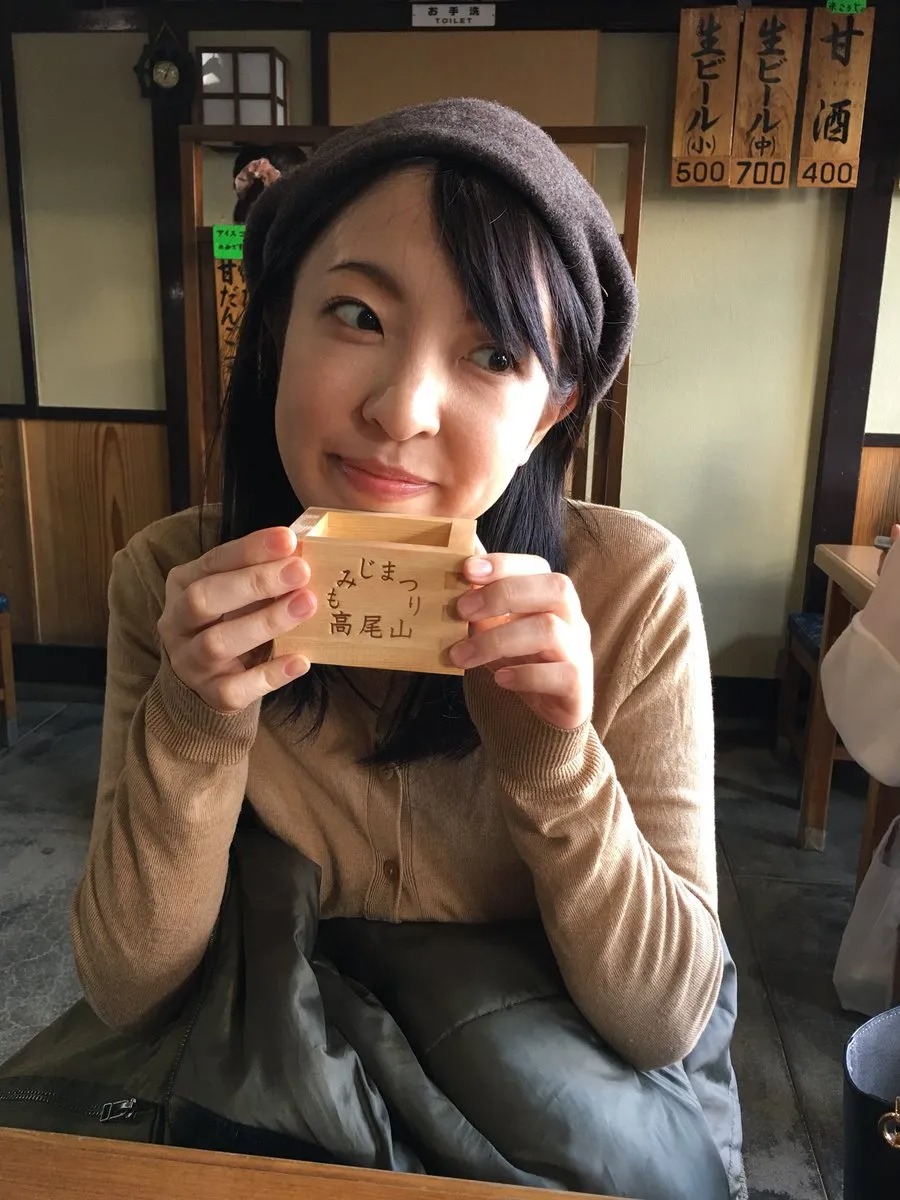 お手洗
TOILET
生ビール(小)
500
生ビール(中)
700
甘酒
400
甘だんご
もみじまつり
高尾山